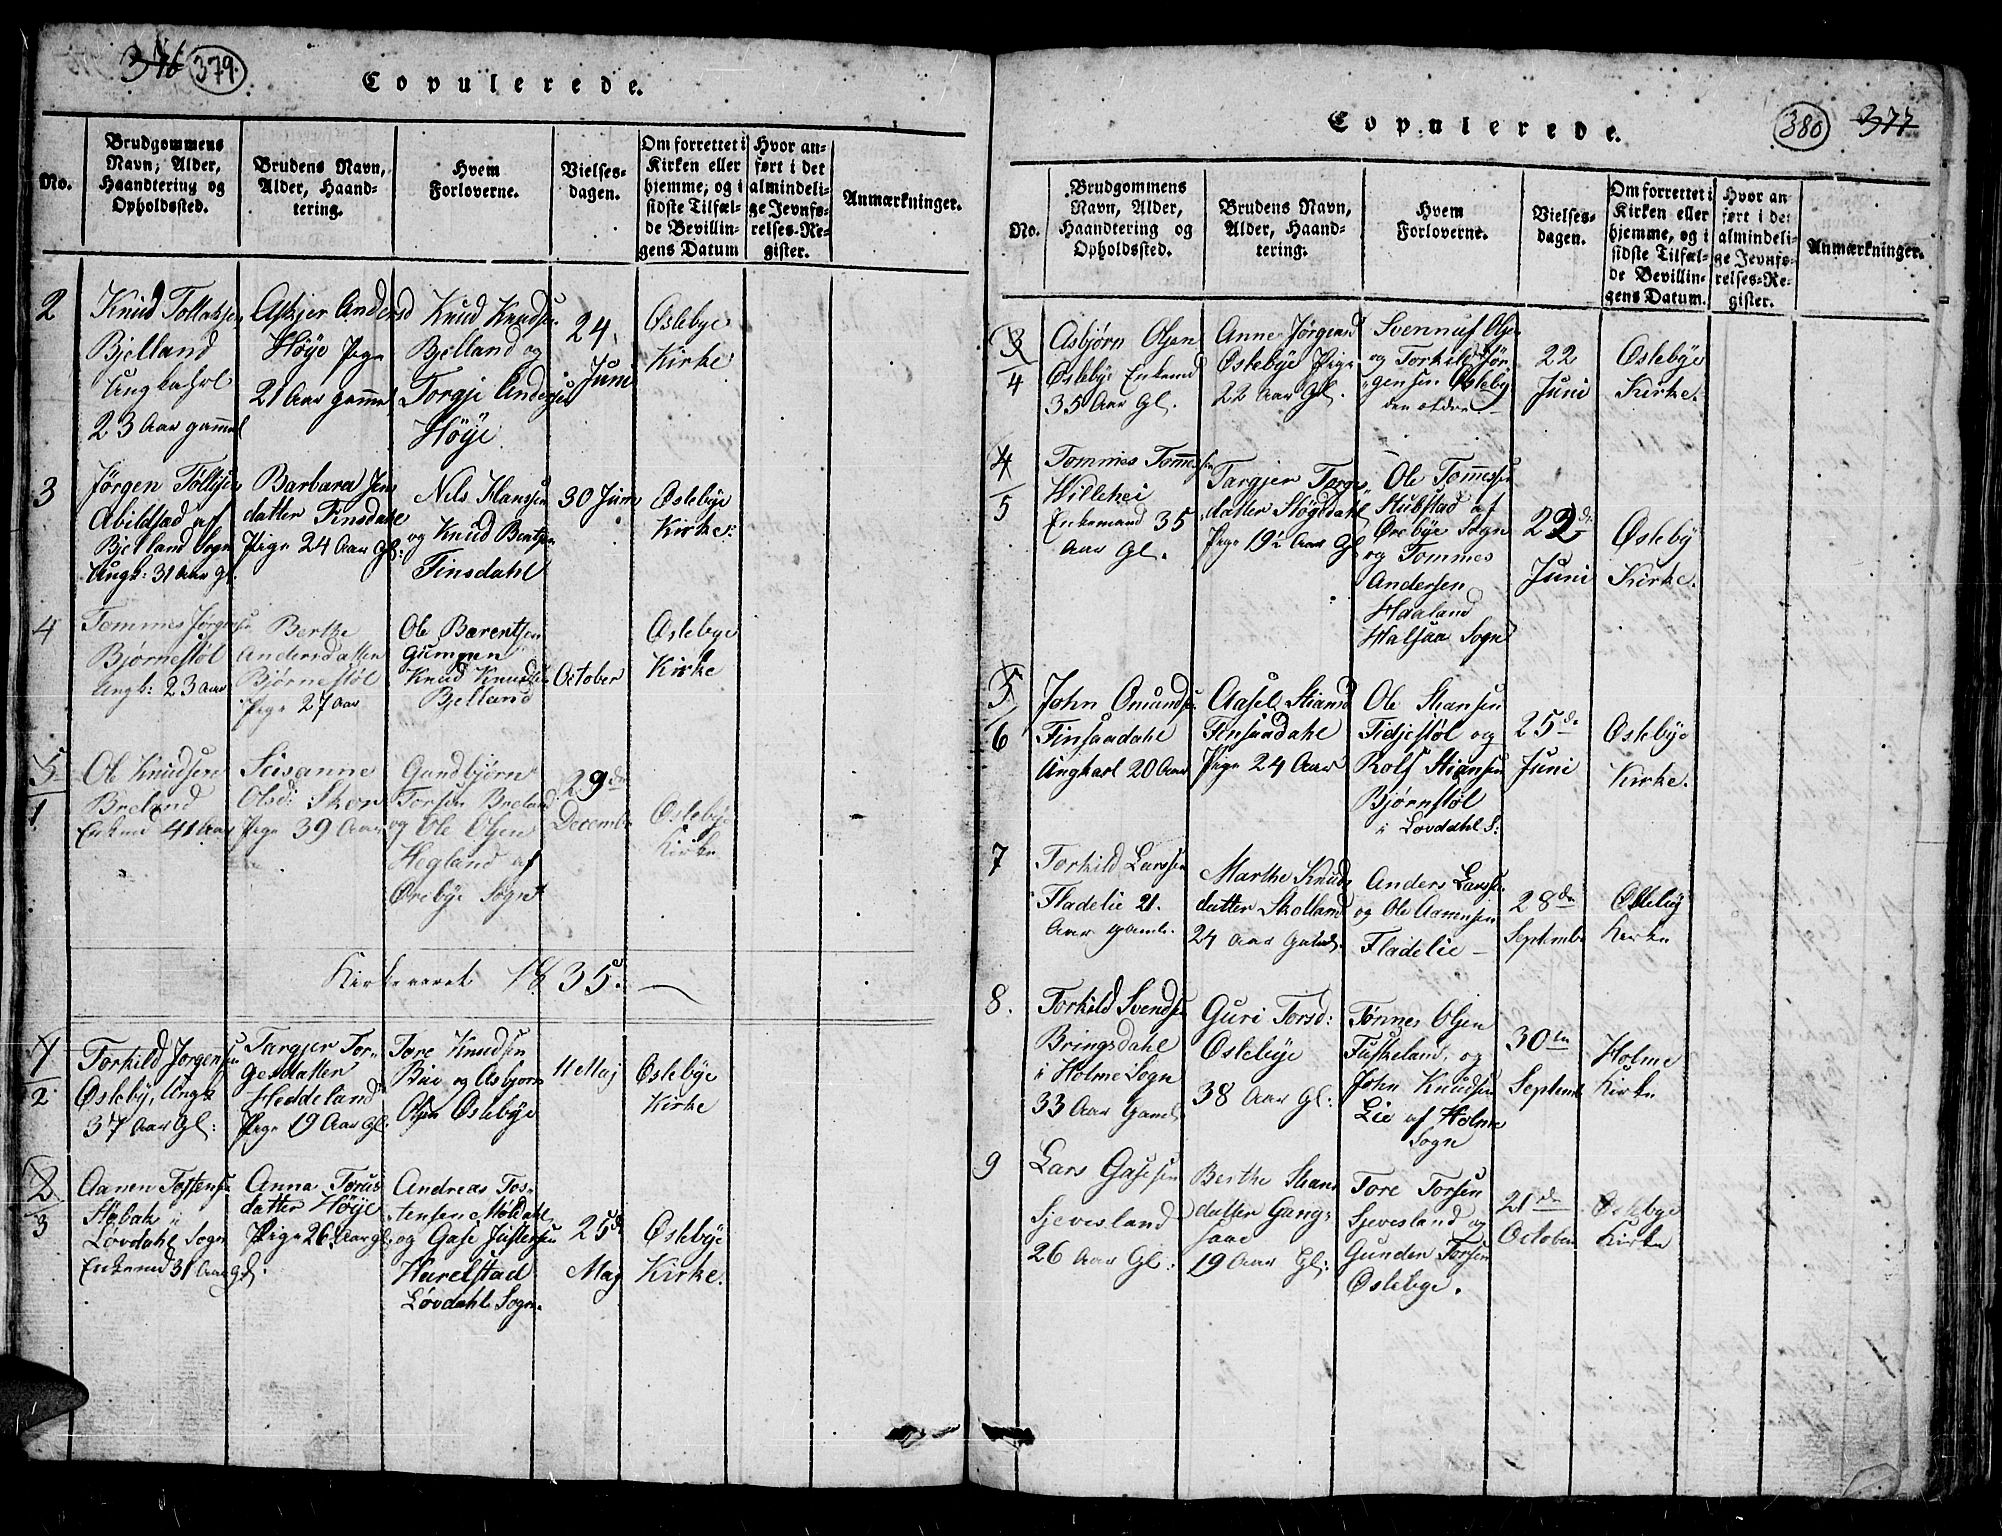 376 379.
Copulerede.
No.
Brudgommens
Navn, Alder,
Haandtering og
Opholdssted.
Brudens Navn,
Alder, Haand-
tering.
Hvem
Forloverne.
Vielses-
dagen.
Om forrettet i
Kirken eller
hjemme, og i
sidste Tilfæl-
de Bevillin-
gens Datum
Hvor an-
ført i det
almindeli-
ge Jevnfø-
relses-Re-
gister.
Anmærkninger.
2
Knud Tollaksen
Bjelland
Ungkahrl
23 Aar gammel
Askjer Andersd
Høye Pige
21 Aar gammel
Knud Knudsen
Bjelland og
Torgje Andersen
Høye
24
Juni
Oslebye
Kirke
3
Jørgen Tøllisen
Abildstad af
Bjelland Sogn
Ungk: 31 Aar Gl.
Barbara Jens
datter Finsdahl
Pige 24 Aar Gl:
Nels Hanssen
og Knud Bentsen
Finsdahl
30 Juni
Øslebye
Kirke:
4
Tommes Jørgensen
Bjørnestøl
Ungk: 23 Aar
Berthe
Andersdatten
Bjørnestøl
Pige 27 Aar
Ole Barentsen
Gummen
Knud Knudsen
Bjelland
October
Oslebye
Kirke
5
1
Ole Knudsen
Breland
Enkmd 41 Aar
Susanne
Olsd: Skor
Pige 39 Aar
Gundbjørn
Torsen Breland
og Ole Olsen
Hegland af
Ørebye Sogn
29de
Decembr
Oslebye
Kirke
Kirkeaaret 1835.
1
2
Torkild Jørgensen
Øsleby, Ungk
37 Aar Gl:
Targjer Tor-
gesdatter
Heddeland
Pige 19 Aar Gl.
Tore Knudsen
Bue og Asbjørn
Olsen Oslebye
11 Maj
Øslebye
Kirke
2
3
Aanen Tostensen
Løvdahl Sogn
Enkemd 31 Aar Gl
Anna Torus
datter Høye
Pige 26 Aar gl:
Andreas Tos-
tensen Møldahl
og Gase Justersen
Harelstad
Løvdahl Sogn.
25de
Maj
Øslebye
Kirke.
Copulerede.
380 377
No.
Brudgommens
Navn, Alder,
Haandtering og
Opholdssted.
Brudens Navn,
Alder, Haand-
tering.
Hvem
Forloverne.
Vielses-
dagen.
Om forrettet i
Kirken eller
hjemme, og i
sidste Tilfæl-
de Bevillin-
gens Datum.
Hvor an
ført i det
almindeli-
ge Jevnfø-
relses-Re-
gister.
Anmærkninger.
3
4
Asbjørn Olsen
Øslebye Enkemd
35 Aar Gl.
Anne Jørgensd
Øslebye Pige
22 Aar Gl.
Svennuf Olsen
og Torkild Jør-
gensen Østeby
den ældre
22
Juni
Oslebye
Kirke.
4
5
Tommes Tommesen
Hillehei
Enkemand 35
Aar Gl.
Targjer Targes
datter Høgedahl
Pige 19½ Aar Gl
Ole Tommessen
Stubstad af
Ørebye Sogn
og Tommes
Andersen
Haaland
Halsaa Sogn
22de
Juni
Østeby
Kirke.
5
6
John Omundsen
Finsaadahl
Ungkarl 20 Aar
Aasel Stiansd
Finsaadahl
Pige 24 Aar
Ole Hansen
Tidjestøl og
Rolf Stiansen
Bjørnstøl
i Løvdahl S:
25de
Juni
Oslebye
Kirke.
7
Torkild Larssen
Fladelie 21.
Aar gamle.
Marthe Knuds
datter Skolland
24 Aar Gamel.
Anders Larssen
og Ole Aanensen
Fladelie
28de
Septembr
Øslebye
Kirke
8.
Torkild Svendsen
Bringsdahl
i Holme Sogn
33 Aar Gaml.
Guri Torsd:
Oslebye
38 Aar Gl:
Tønnes Olsen
Fuskeland, og
John Knudsen
Lie af Holme
Sogn
30te
Septembr
Holme
Kirke
9
Lars Gasesen
Sjevesland
26 Aar Gl.:
Berthe Stians
datter Gang-
saae
19 Aar Gl:
Tore Torsen
Sjevesland og
Gunder Torsen
Øslebye.
21de
October
Oslebye
Kirke